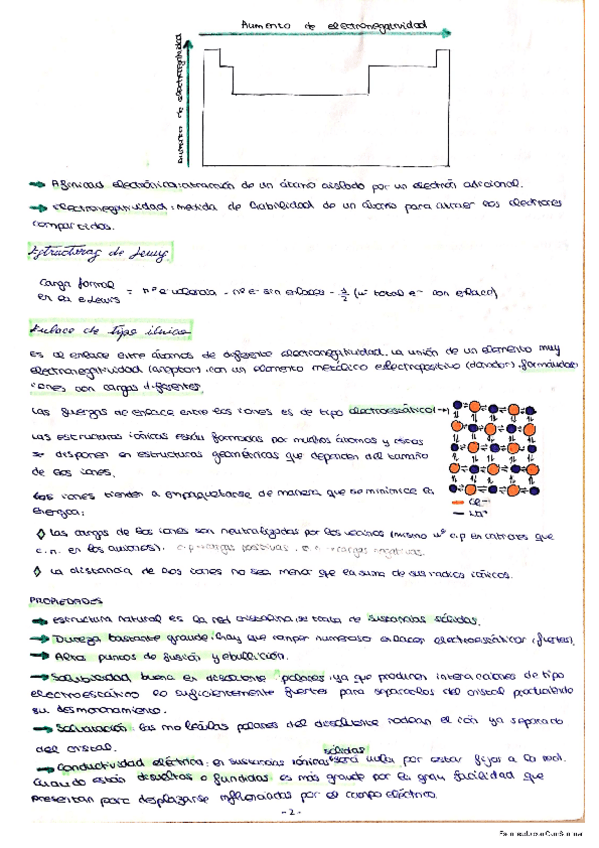 Aumento de electronegatividad
Aumento de electronegatividad
Afinidad electrónica: atracción de un átomo aislado por un electrón adicional.
Electronegatividad: medida de habilidad de un átomo para atraer los electrones
compartidos.
Estructuras de Lewis
Carga formal
en la e Lewis = nº e⁻ valencia - nº e⁻ sin enlace - 1/2 (nº total e⁻ con enlace)
Enlace de tipo iónico
Es el enlace entre átomos de diferente electronegatividad. La unión de un elemento muy
electronegatividad (aceptor), con un elemento metálico electropositivo (dador), formándose
iones con cargas diferentes.
Las fuerzas de enlace entre los iones es de tipo electroestático
Las estructuras iónicas están formadas por muchos átomos y estas
se disponen en estructuras geométricas que dependen del tamaño
de los iones.
Los iones tienden a empaquetarse de manera que se minimice la
energía:
Las cargas de los iones son neutralizadas por los vecinos (mismo nº c.p en cationes que
c.n. en los aniones). c.p → cargas positivas, c.n → cargas negativas.
La distancia de dos iones no sea menor que la suma de sus radios iónicos.
PROPIEDADES
Estructura natural es la red cristalina, se trata de sustancias sólidas.
Dureza bastante grande: hay que romper numeroso enlaces electroestáticos (fuertes).
Altos puntos de fusión y ebullición.
Solubilidad buena en disolvente polares, ya que producen interacciones de tipo
electroestático lo suficientemente fuertes para separarlos del cristal produciendo
su desmoronamiento.
Solvatación: las moléculas polares del disolvente rodean el ión ya separado
del cristal.
sólidas
Conductividad eléctrica: en sustancias iónicas será nula por estar fijos a la red.
Cuando están disueltos o fundidas es más grande por la gran facilidad que
presentan para desplazarse influenciados por el campo eléctrico.
-2-